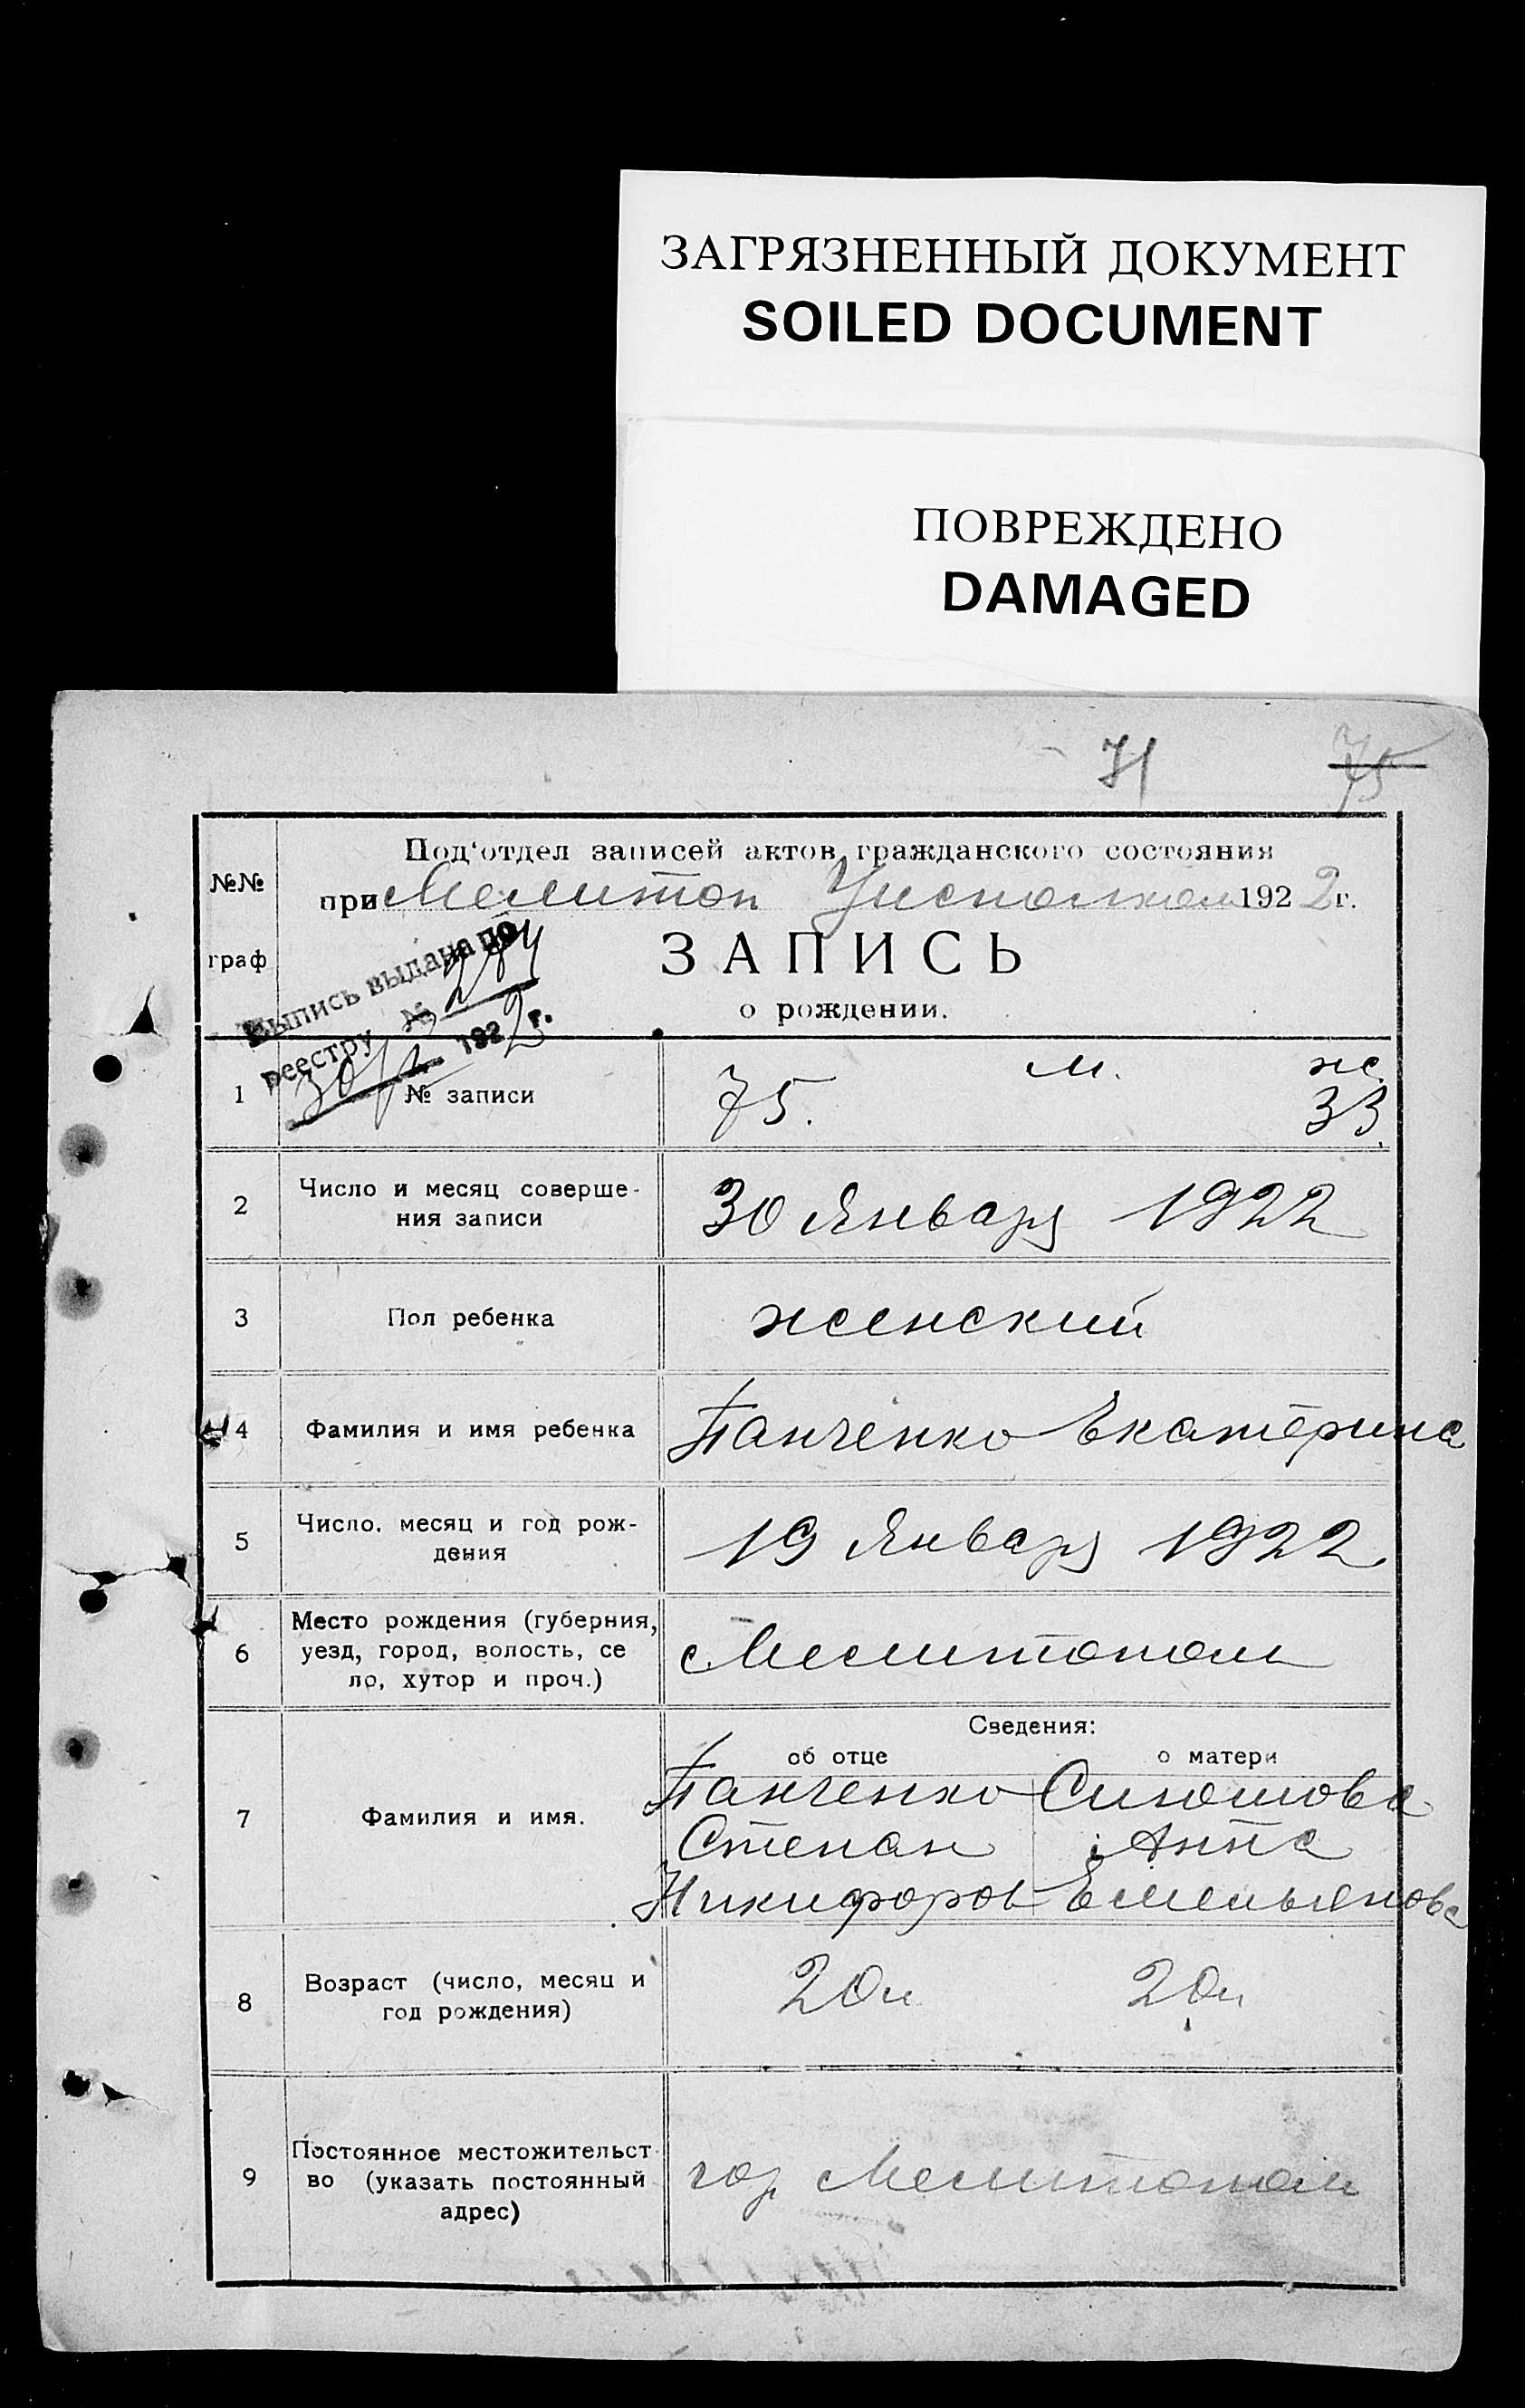 ЗАГРЯЗНЕННЫЙ ДОКУМЕНТ
SOILED DOCUMENT
ПОВРЕЖДЕНО
DAMAGED
71 75
№№ граф
Под'отдел записей актов гражданского состояния
при Мелитоп Уисполком 1922 г.
ЗАПИСЬ
о рождении.
Выпись выдана по
реестру № 284
30/1 1922 г.
1 № записи 75. м. ж. 33.
2 Число и месяц соверше-
ния записи 30 Января 1922
3 Пол ребенка женский
4 Фамилия и имя ребенка Панченко Екатерина
5 Число, месяц и год рож-
дения 19 Января 1922
6 Место рождения (губерния,
уезд, город, волость, се
ло, хутор и проч.) Мелитополь
Сведения:
об отце о матери
7 Фамилия и имя. Панченко
Степан Анна
Никифоров Емельянова
8 Возраст (число, месяц и
год рождения) 20л 20л
9 Постоянное местожительст-
во (указать постоянный
адрес) гор Мелитополь